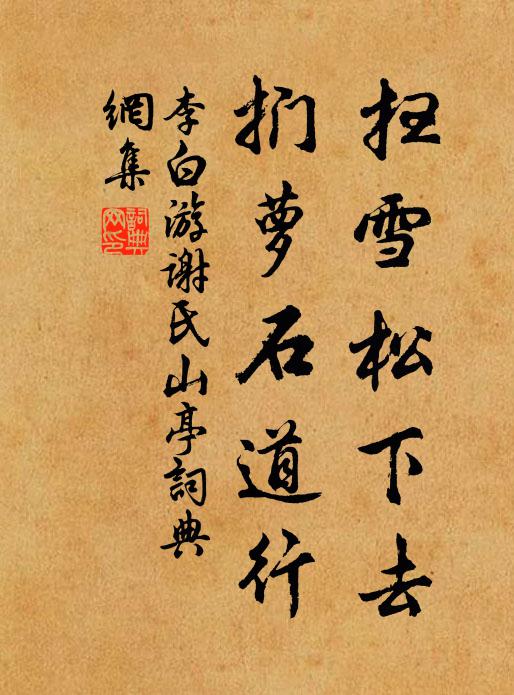 扫雪松下去
捫萝石道行
李白游谢氏山亭詞典
網集
詞典
网印